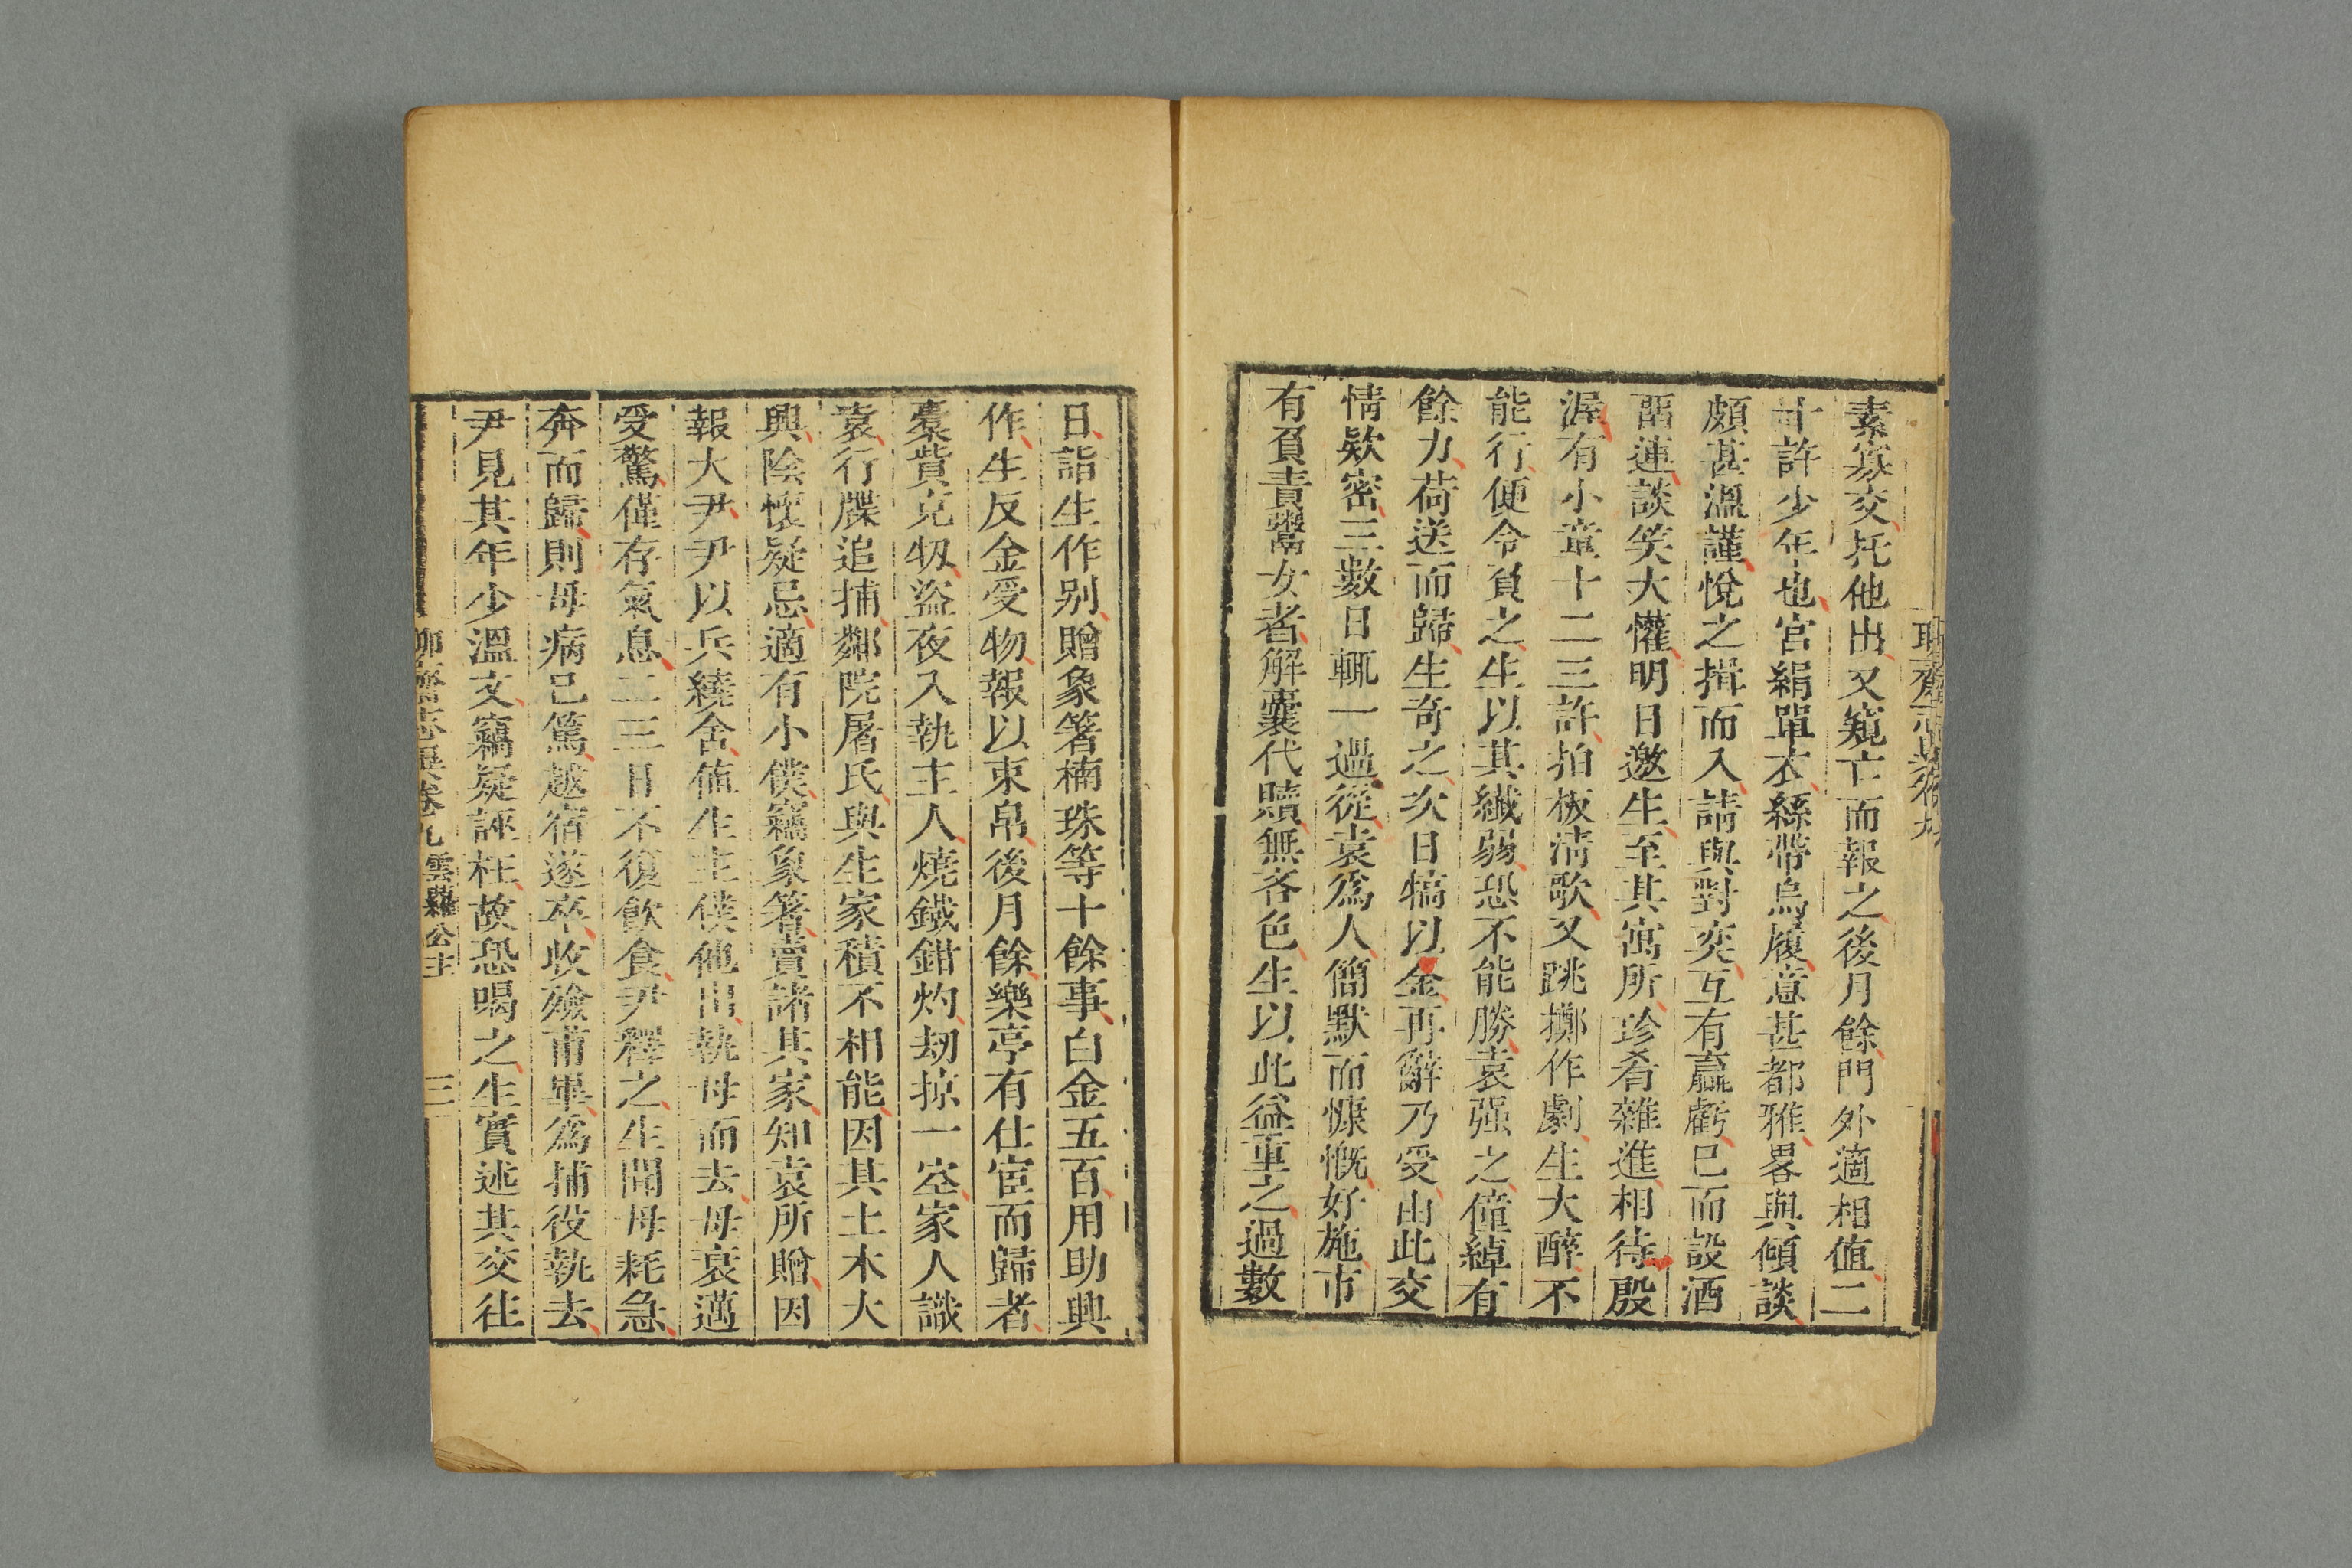 素寡交托他出又窺亡而報之後月餘門外適相值二
十許少年也宮絹單衣絲帶烏履意甚都雅畧與傾談
頗甚溫謹悅之揖而入請與對奕互有贏虧已而設酒
畱連談笑大懽明日邀生至其寓所珍肴雜進相待殷
渥有小童十二三許拍板清歌又跳擲作劇生大醉不
能行便令負之生以其纖弱恐不能勝袁强之僮綽有
餘力荷送而歸生奇之次日犒以金再辭乃受由此交
情欵密三數日輒一過從袁爲人簡默而慷慨好施市
有負責鬻女者解囊代贖無吝色生以此益重之過數
日詣生作别贈象箸楠珠等十餘事白金五百用助興
作生反金受物報以束帛後月餘樂亭有仕宦而歸者
橐貲充牣盜夜入執主人燒鐵鉗灼刼掠一空家人識
袁行牒追捕鄰院屠氏與生家積不相能因其土木大
興陰懷疑忌適有小僕竊象箸賣諸其家知袁所贈因
報大尹尹以兵繞舍值生主僕他出執母而去母衰邁
受驚僅存氣息二三日不復飲食尹釋之生聞母耗急
奔而歸則母病已篤越宿遂卒收殮甫畢爲捕役執去
尹見其年少溫文竊疑誣枉故恐喝之生實述其交往
聊齋志異卷九 雲蘿公主 三